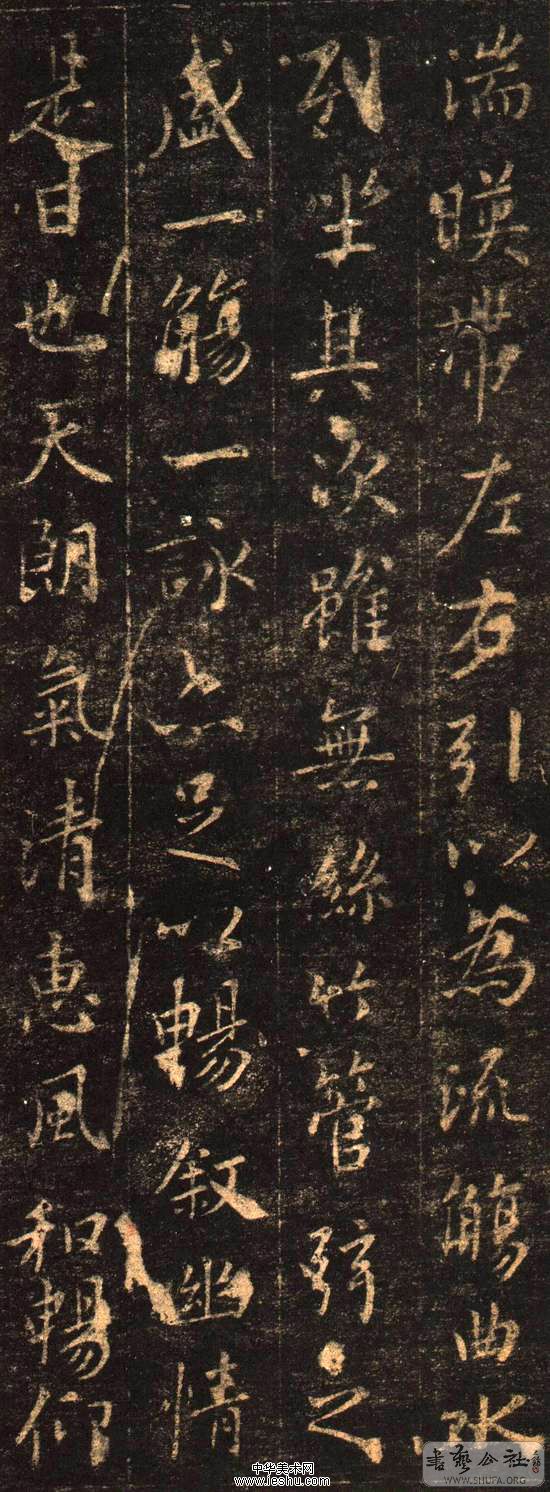 湍暎帶左右引以為流觴曲水
列坐其次雖無絲竹管弦之
盛一觴一詠亦足以暢敘幽情
是日也天朗氣清惠風和暢仰
中华美术网
www.ieshu.com
書藝公社
WWW.SHUFA.ORG